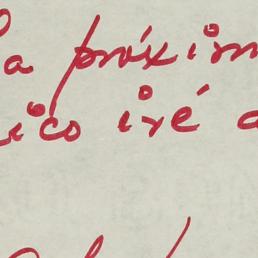 la próxim
ico iré a